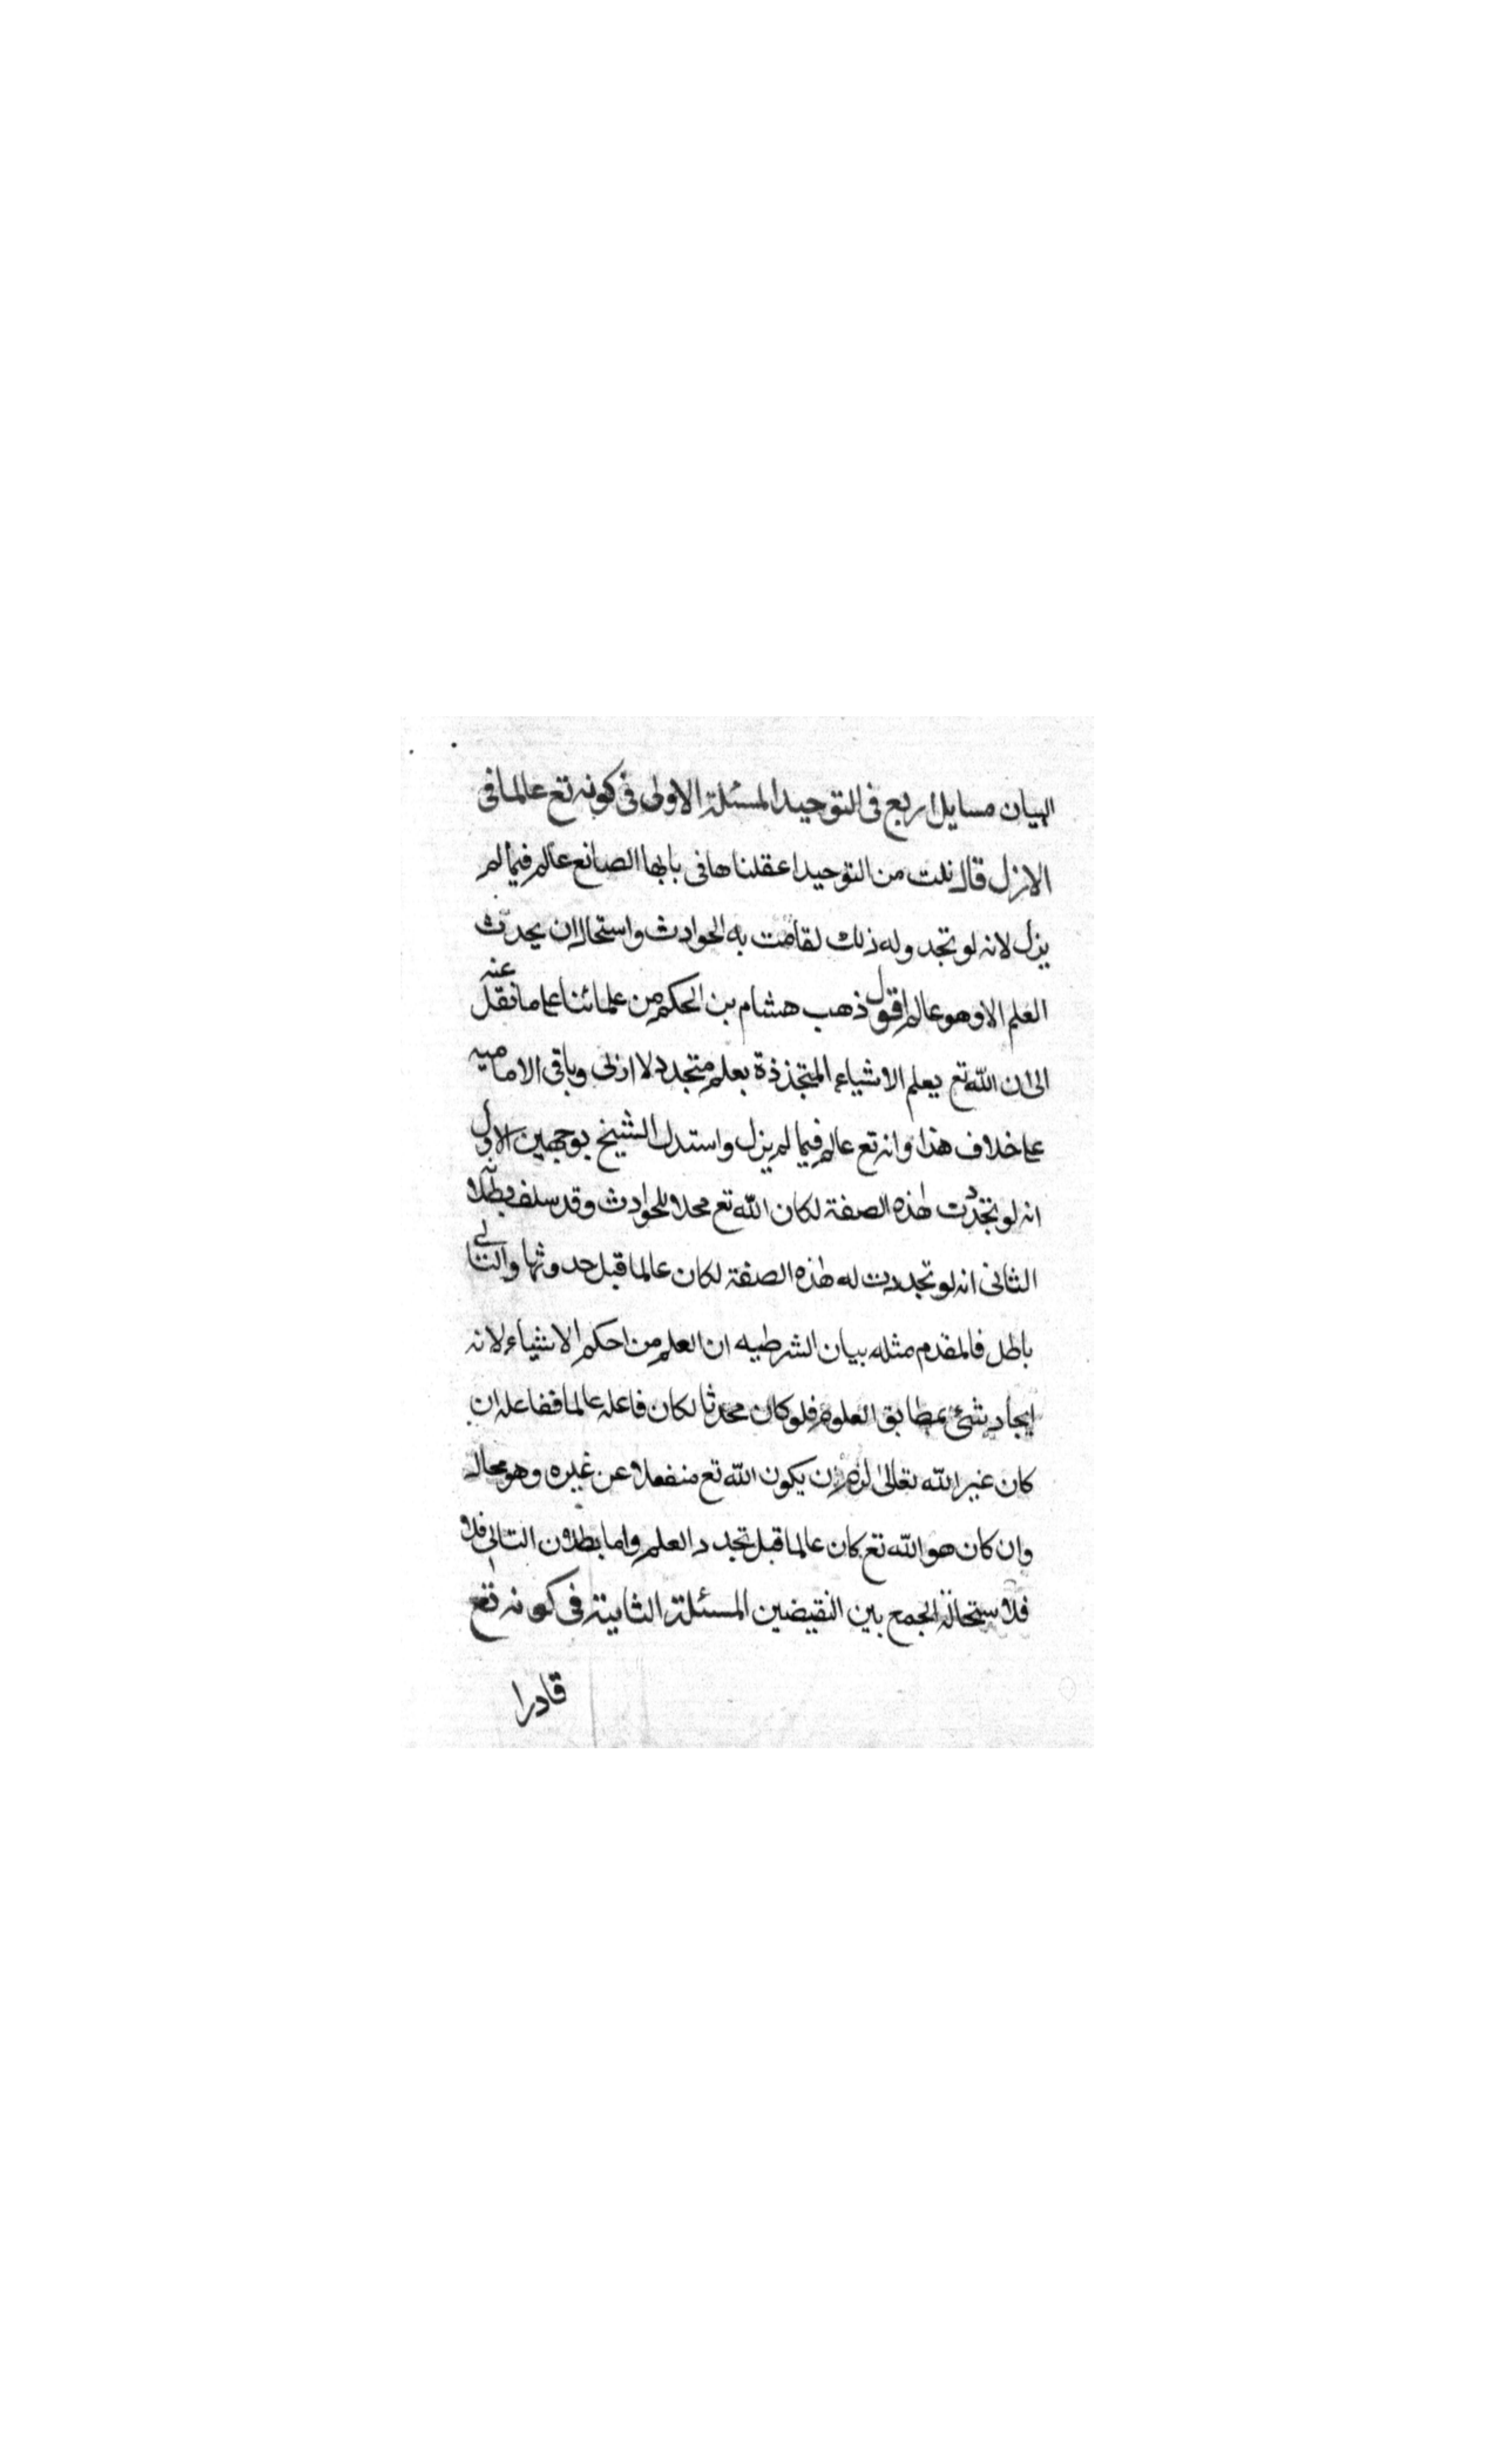 البيان مسايل اربع فى التوحيد المسئلة الاولى فى كونه تع عالما فى
الازل قال نكت من التوحيد اعقلناها فى بابها الصانع عالم فيما لم
يزل لانه لو تجدد وله ذلك لقامت به الحوادث واستحال ان يحدث
العلم الا وهو عالم اقول ذهب هشام بن الحكم من علمائنا على ما نقل عنه
الى ان الله تع يعلم الاشياء المتجذذة بعلم متجدد لا ازلى وباقى الاماميه
على خلاف هذا وانه تع عالم فيما لم يزل واستدل الشيخ بوجهين الاول
انه لو تجددت هذه الصفة لكان الله تع محلا للحوادث وقد سلف بطلا
الثانى انه لو تجددت له هذه الصفة لكان عالما قبل حدوثها والتالى
باطل فالمقدم مثله بيان الشرطيه ان العلم من احكم الاشياء لانه
ايجاد شئ بمطابق العلوم فلو كان محدثا لكان فاعله عالما ففاعله ان
كان غير الله تعالى لزم ان يكون الله تع منفعلا عن غيره وهو محال
وان كان هو الله تع كان عالما قبل تجدد العلم واما بطلان التالى فلا
فلاستحالة الجمع بين النقيضين المسئلة الثانية فى كونه تع
قادرا